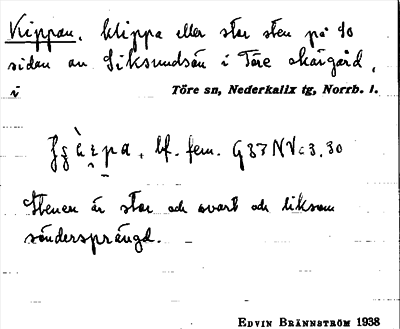 Kippan, klippa eller stor sten på so
sidan av Siksundsön i Töre skärgård,
Töre sn, Nederkalix tg, Norrb. l.
bf. fem.
Stenen är stor och svart och liksom
söndersprängd.
EDVIN BRÄNNSTRÖM 1938